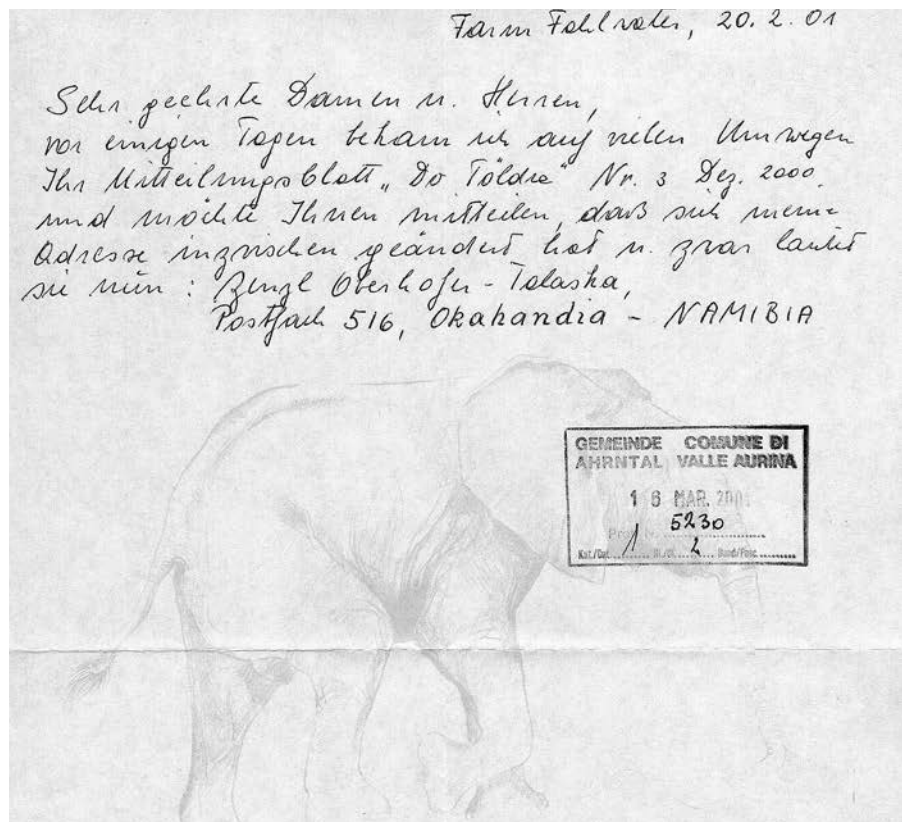 Farm Fahlwater, 20.2.01
Sehr geehrte Damen u. Herren,
vor einigen Tagen bekam ich auf vielen Umwegen
Ihr Mitteilungsblatt „Do Töldra" Nr. 3 Dez. 2000
und möchte Ihnen mitteilen, daß sich meine
Adresse inzwischen geändert hat u. zwar lautet
sie nun: Zenzl Oberhofer-Talaska,
Postfach 516, Okahandia - NAMIBIA
GEMEINDE COMUNE DI
AHRNTAL VALLE AURINA
16 MAR. 2001
Prot. N. 5230
Kat./Cat. 1 Kl./Cl. 2 Bund/Fasc.